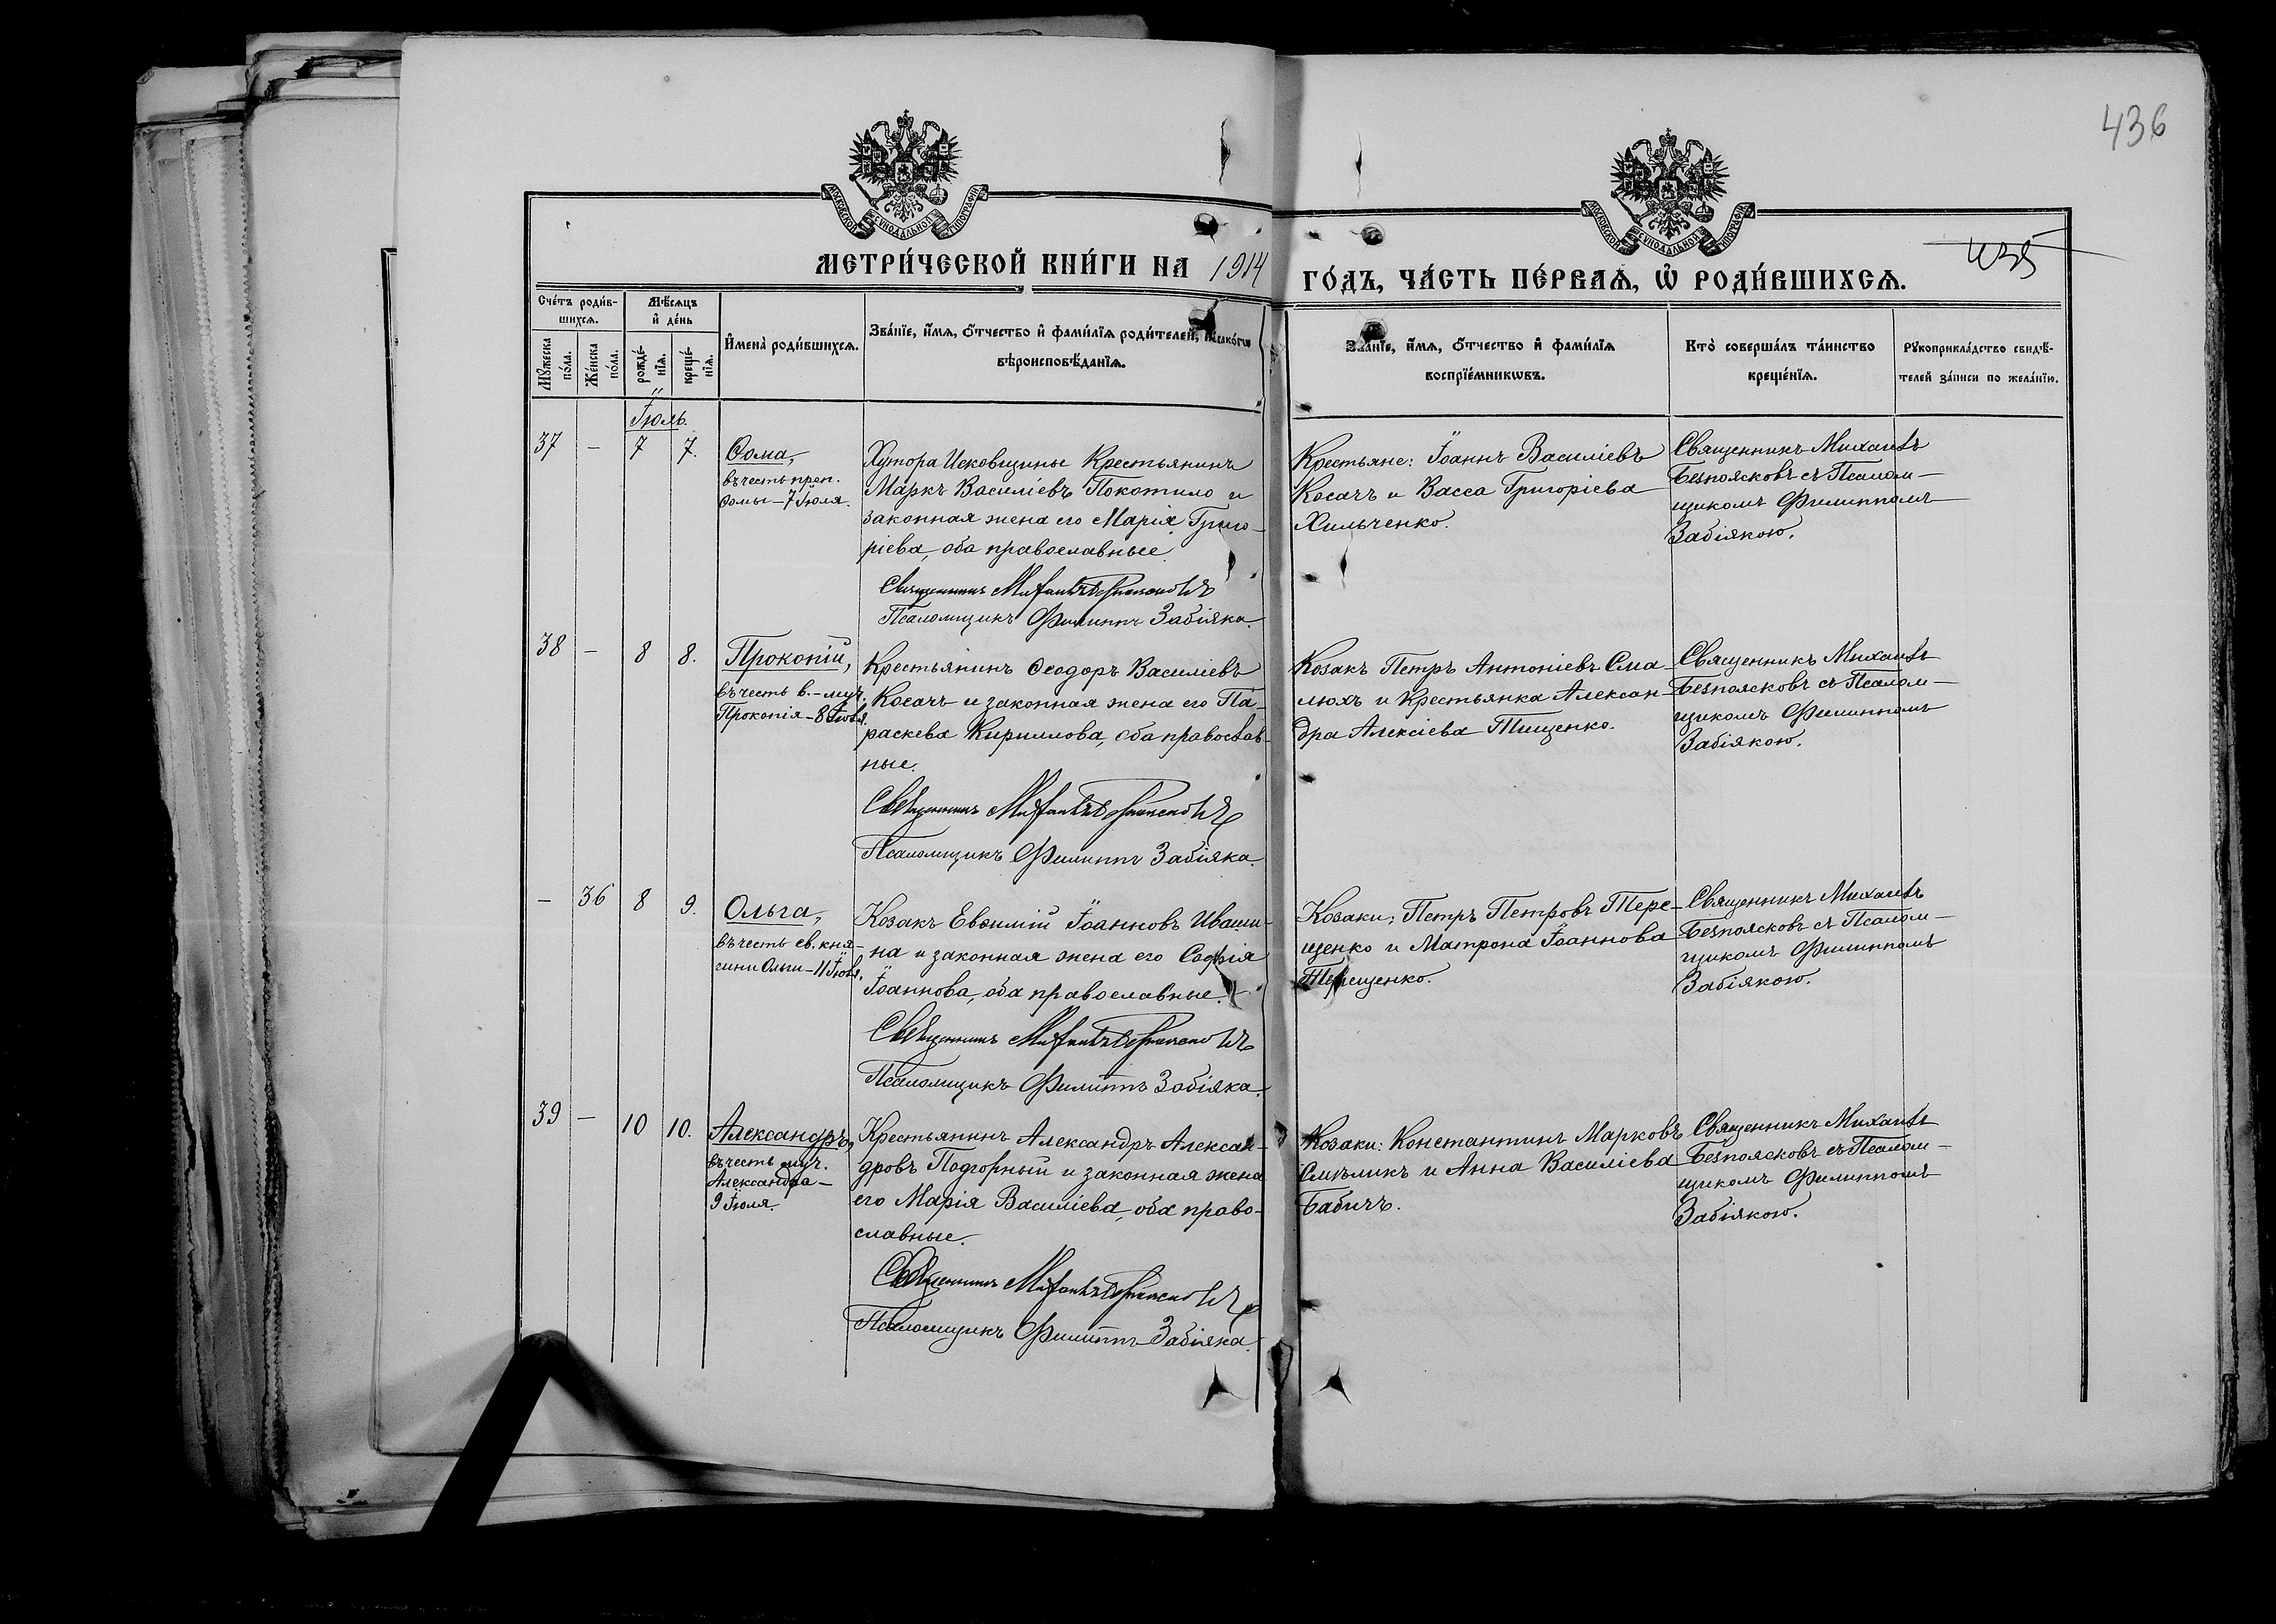 436
МОСКОВСКОЙ СѴНОДАЛЬНОЙ ТИПОГРАФІИ
МОСКОВСКОЙ СѴНОДАЛЬНОЙ ТИПОГРАФІИ
435
МЕТРИ́ЧЕСКОЙ КНИ́ГИ НА 1914 ГО́ДЪ, ЧА́СТЬ ПЕ́РВАѦ, Ѡ҆ РОДИ́ВШИХСѦ.
Сче́тъ роди́в-
шихсѧ.
Мѣ́сѧцъ
и҆ де́нь
Мꙋ́жеска
по́ла.
Же́нска
по́ла.
рожде́-
нїѧ.
креще́-
нїѧ.
И҆мена̀ роди́вшихсѧ.
Зва́нїе, и҆́мѧ, ѻ҆́тчество и҆ фами́лїѧ роди́телей,
вѣроисповѣ́данїѧ.
Зва́нїе, и҆́мѧ, ѻ҆́тчество и҆ фами́лїѧ
воспрїе́мникѡвъ.
Кто̀ соверша́лъ та́инство
креще́нїѧ.
Рꙋкоприкла́дство свидѣ́-
телей за́писи по жела́нїю.
Іюль.
37 — 7 7.
Ѳома,
въ честь преп.
Ѳомы — 7 Іюля.
Хутора Исковщины Крестьянинъ
Маркъ Василіевъ Покотило и
законная жена его Марія Григо-
ріева, оба православные.
Священникъ Михаилъ Безпоясковъ
Псаломщикъ Филиппъ Забіяка.
Крестьяне: Іоаннъ Василіевъ
Косачъ и Васса Григоріева
Хильченко.
Священникъ Михаилъ
Безпоясковъ съ Псалом-
щикомъ Филиппомъ
Забіякою.
38 — 8 8.
Прокопій,
въ честь в.-муч.
Прокопія — 8 Іюля.
Крестьянинъ Ѳеодоръ Василіевъ
Косачъ и законная жена его Па-
раскева Кириллова, оба православ-
ные.
Священникъ Михаилъ Безпоясковъ
Псаломщикъ Филиппъ Забіяка.
Козакъ Петръ Антоніевъ Сма-
люхъ и Крестьянка Алексан-
дра Алексіева Тищенко.
Священникъ Михаилъ
Безпоясковъ съ Псалом-
щикомъ Филиппомъ
Забіякою.
— 36 8 9.
Ольга,
въ честь св. кня-
гини Ольги — 11 Іюля.
Козакъ Евѳимій Іоанновъ Иваши-
на и законная жена его Софія
Іоаннова, оба православные.
Священникъ Михаилъ Безпоясковъ
Псаломщикъ Филиппъ Забіяка.
Козаки: Петръ Петровъ Тере-
щенко и Матрона Іоаннова
Терещенко.
Священникъ Михаилъ
Безпоясковъ съ Псалом-
щикомъ Филиппомъ
Забіякою.
39 — 10 10.
Александръ,
въ честь муч.
Александра —
9 Іюля.
Крестьянинъ Александръ Алексан-
дровъ Подгорный и законная жена
его Марія Василіева, оба право-
славные.
Священникъ Михаилъ Безпоясковъ
Псаломщикъ Филиппъ Забіяка.
Козаки: Константинъ Марковъ
Смѣликъ и Анна Василіева
Бабичъ.
Священникъ Михаилъ
Безпоясковъ съ Псалом-
щикомъ Филиппомъ
Забіякою.